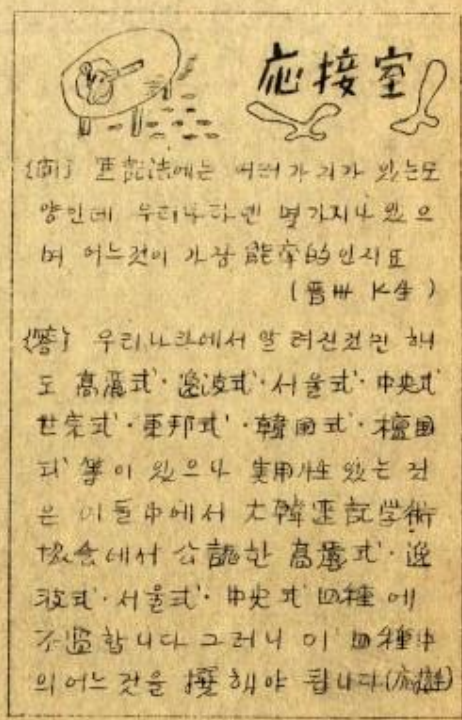 応接室
{問} 速記法에는 여러가지가 있는모
양인데 우리나라엔 몇가지나 있으
며 어느것이 가장 能率的인지요
(晋州 K生)
{答} 우리나라에서 알려진것만 해
도 高麗式·逸波式·서울式·中央式
世宗式·東邦式·韓国式·檀国
式 等이 있으나 実用性 있는 것
은 이들中에서 大韓速記学術
協会에서 公認한 高麗式·逸
波式·서울式·中央式 四種에
不過합니다 그러니 이 四種中
의 어느 것을 擇해야 됩니다